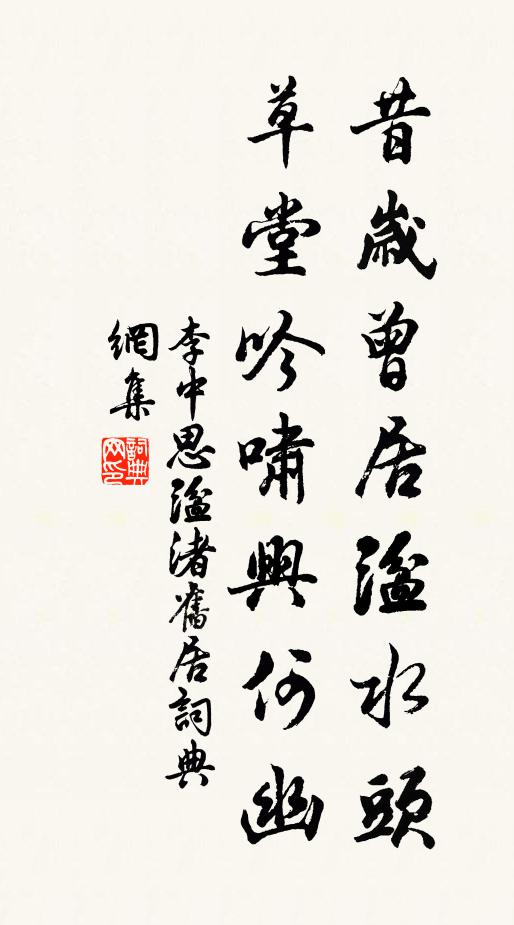 昔歲曾居湓水頭
草堂吟嘯興何幽
李中思湓渚舊居詞典
網集
詞典网印